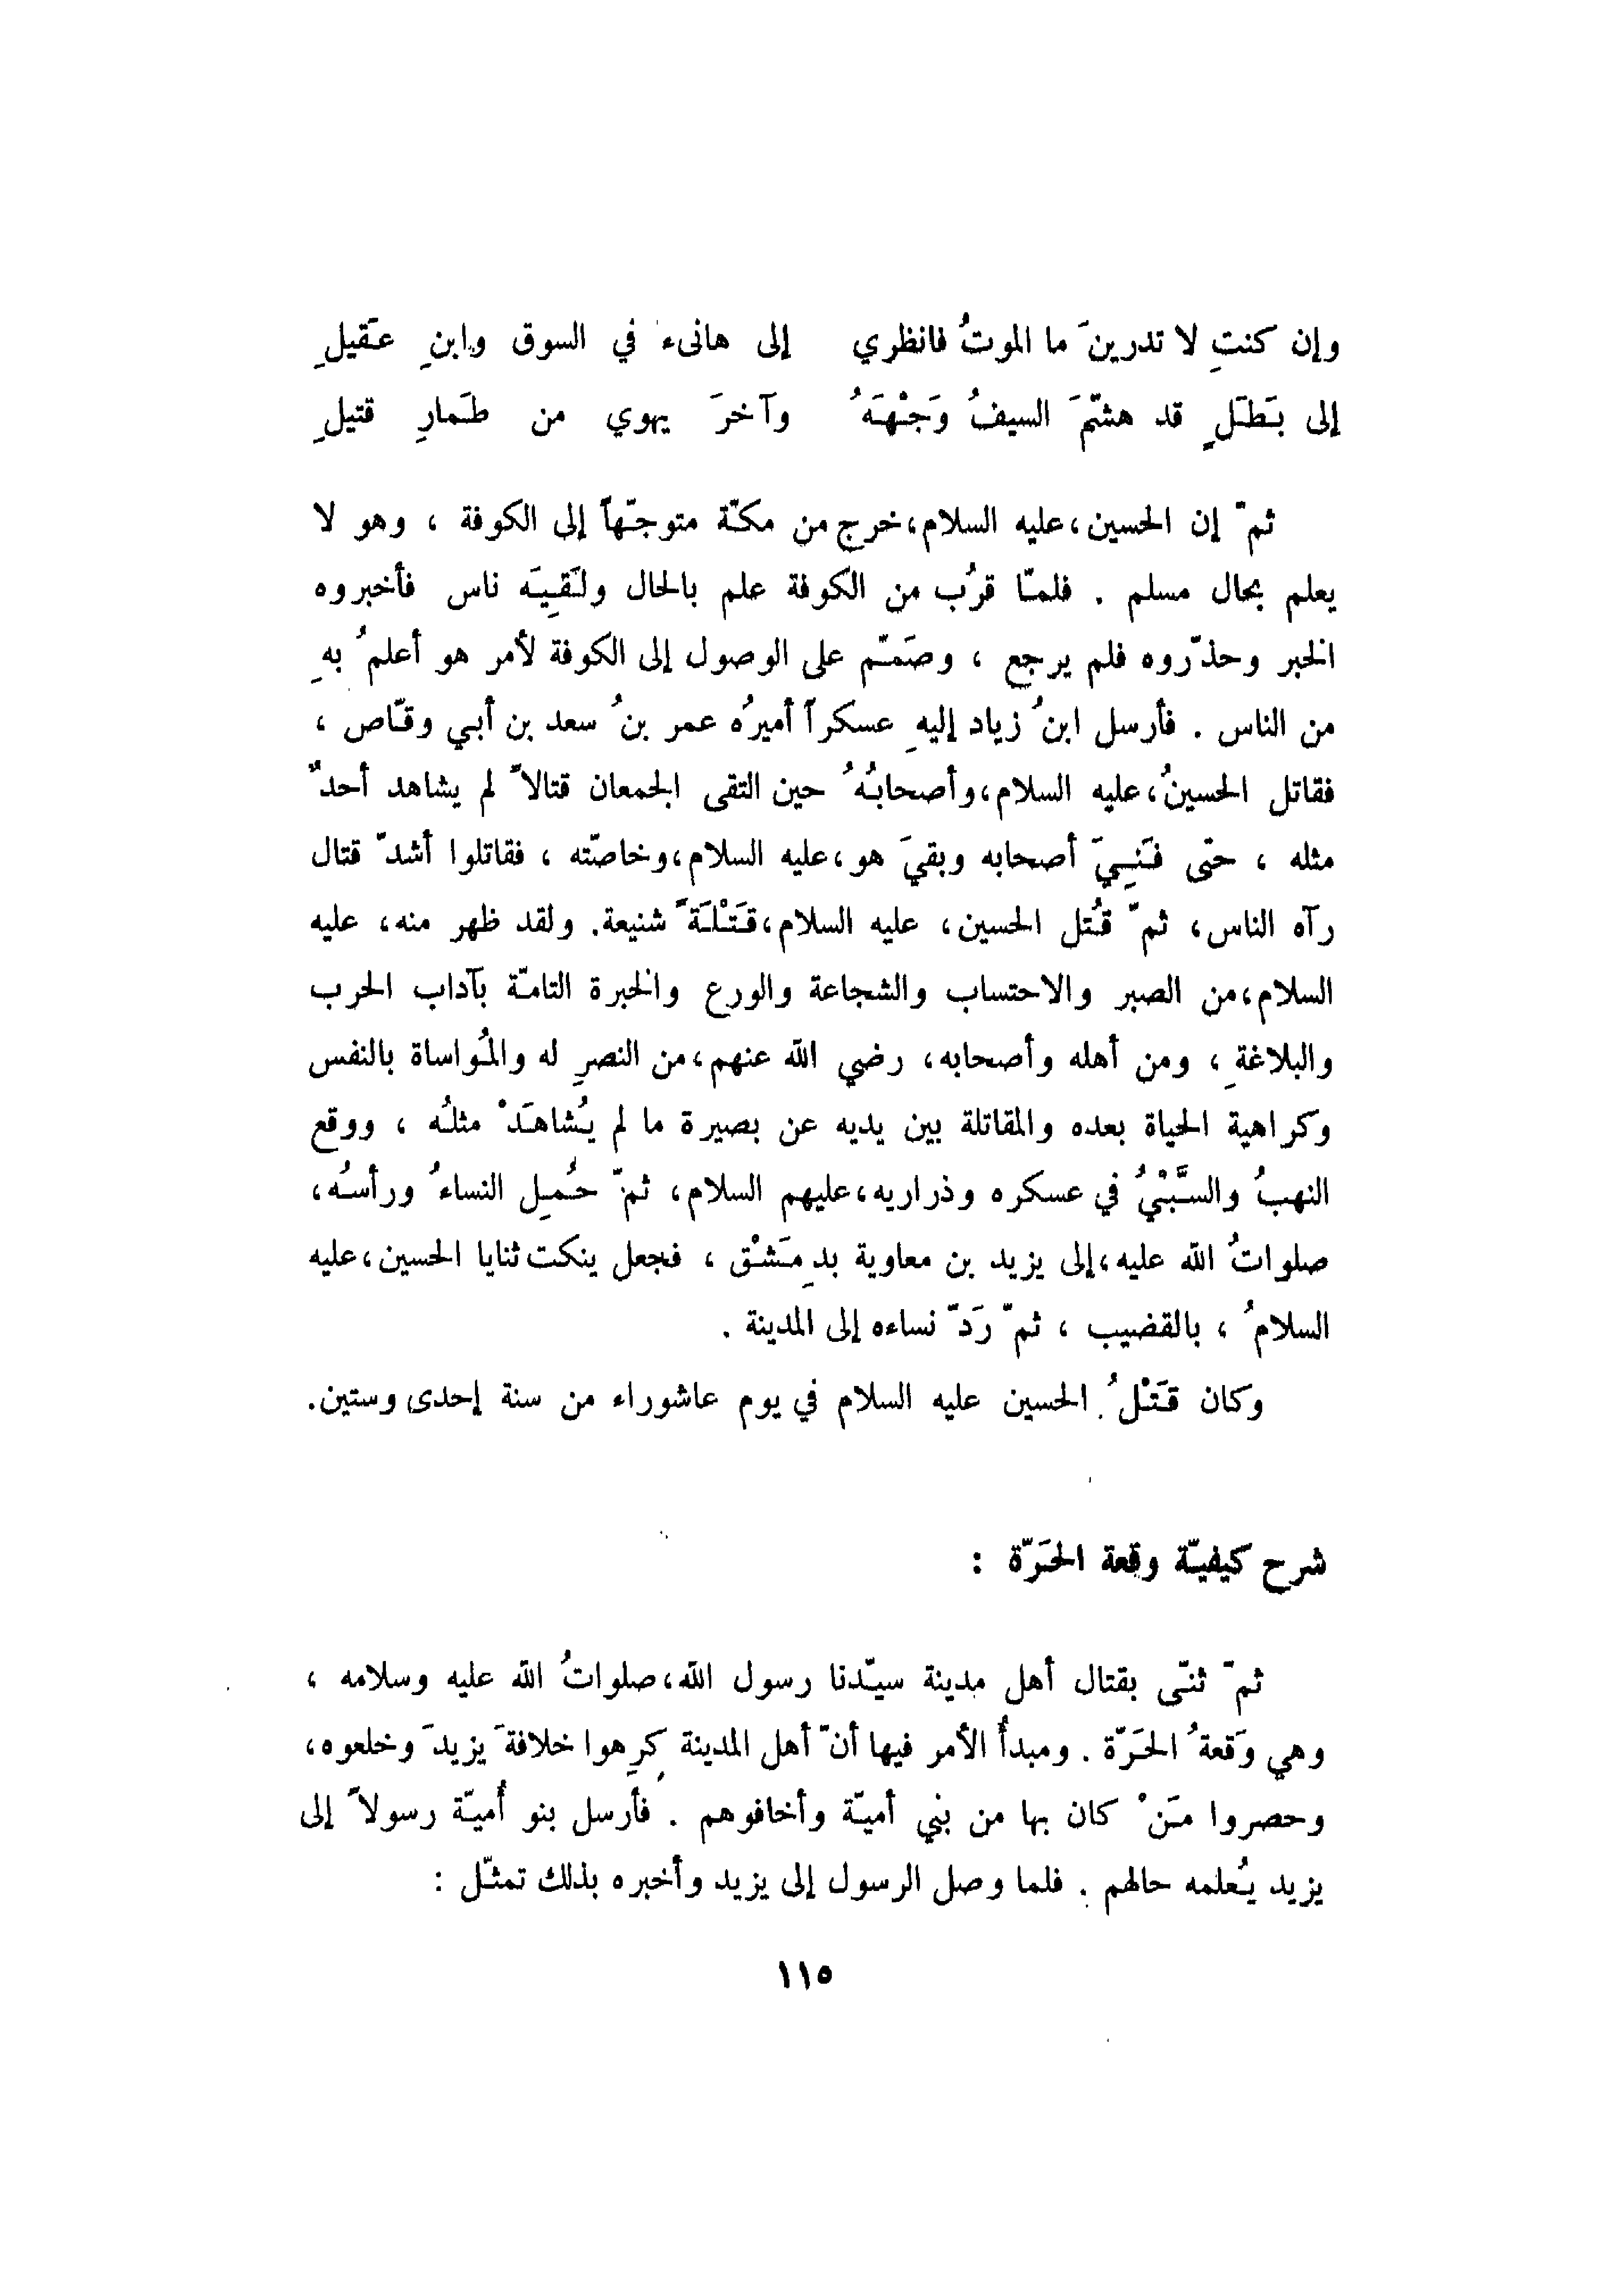 وإن كنتِ لا تدرينَ ما الموتُ فانظري إلى هانىء في السوق وابنِ عَقيلِ
إلى بَطَلٍ قد هشّمَ السيفُ وَجْهَهُ وآخرَ يهوي من طَمارِ قتيلِ
ثمّ إن الحسين، عليه السلام، خرج من مكّة متوجّهاً إلى الكوفة ، وهو لا
يعلم بحال مسلم . فلمّا قرُب من الكوفة علم بالحال ولَقِيَه ناس فأخبروه
الخبر وحذّروه فلم يرجع ، وصَمّم على الوصول إلى الكوفة لأمر هو أعلمُ بهِ
من الناس . فأرسل ابنُ زياد إليهِ عسكراً أميرُه عمر بنُ سعد بن أبي وقّاص ،
فقاتل الحسينُ، عليه السلام، وأصحابُهُ حين التقى الجمعان قتالاً لم يشاهد أحدٌ
مثله ، حتّى فَنِيَ أصحابه وبقيَ هو، عليه السلام، وخاصّته ، فقاتلوا أشدّ قتال
رآه الناس، ثمّ قُتل الحسين، عليه السلام، قَتْلَةً شنيعة. ولقد ظهر منه، عليه
السلام، من الصبر والاحتساب والشجاعة والورع والخبرة التامّة بآداب الحرب
والبلاغةِ ، ومن أهله وأصحابه، رضي الله عنهم، من النصرِ له والمُواساة بالنفس
وكراهية الحياة بعده والمقاتلة بين يديه عن بصيرة ما لم يُشاهَدْ مثلُه ، ووقع
النهبُ والسَّبْيُ في عسكره وذراريه، عليهم السلام، ثمّ حُمِل النساءُ ورأسُه،
صلواتُ الله عليه، إلى يزيد بن معاوية بدِمَشْق ، فجعل ينكت ثنايا الحسين، عليه
السلامُ ، بالقضيب ، ثمّ رَدّ نساءه إلى المدينة .
وكان قَتْلُ الحسين عليه السلام في يوم عاشوراء من سنة إحدى وستين.
شرح كيفيّة وقعة الحَرّة :
ثمّ ثنّى بقتال أهل مدينة سيّدنا رسول الله، صلواتُ الله عليه وسلامه ،
وهي وَقعةُ الحَرّة . ومبدأُ الأمر فيها أنّ أهل المدينة كرِهوا خلافةَ يزيدَ وخلعوه،
وحصروا مَنْ كان بها من بني أميّة وأخافوهم . فأرسل بنو أُميّة رسولاً إلى
يزيد يُعلمه حالهم . فلما وصل الرسول إلى يزيد وأخبره بذلك تمثّل :
١١٥